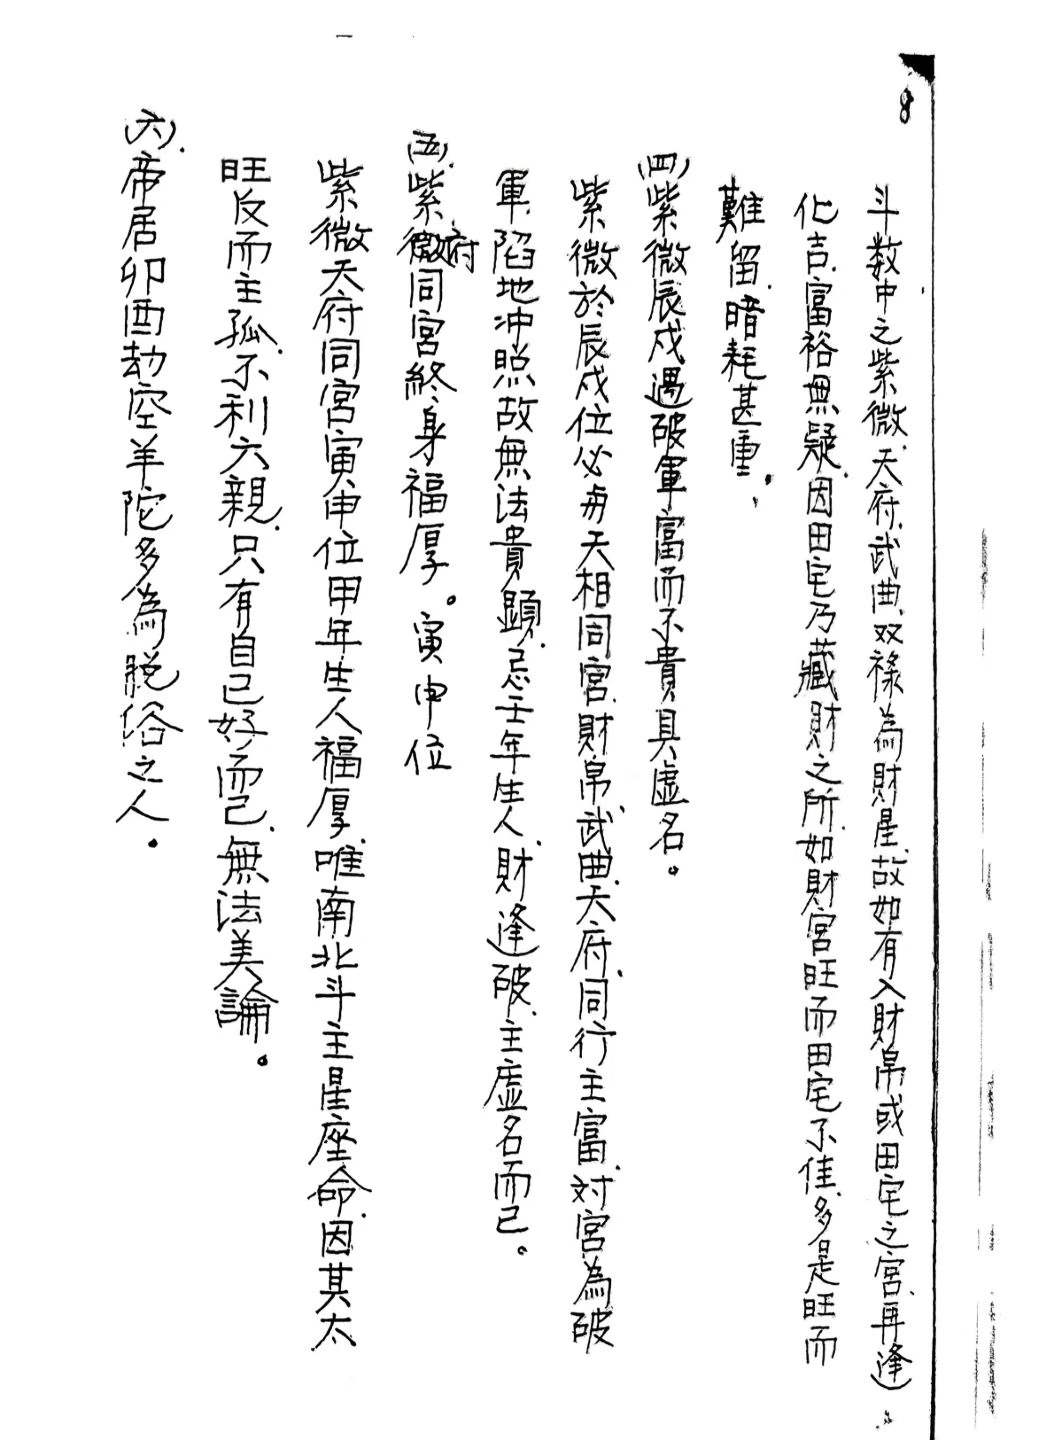 8
斗数中之紫微、天府、武曲、双祿為財星、故如有入財帛或田宅之宮、再逢
化吉、富裕無疑、因田宅乃藏財之所、如財宮旺而田宅不佳、多是旺而
難留、暗耗甚重。
(四)紫微辰戌遇破軍富而不貴具虛名。
紫微於辰戌位必與天相同宮、財帛、武曲、天府、同行主富、対宮為破
軍、陷地冲照故無法貴顯、忌壬年生人、財逢破、主虛名而已。
(五)、紫微府同宮終身福厚。寅申位
紫微天府同宮寅申位甲年生人福厚、唯南北斗主星座命、因其太
旺反而主孤、不利六親、只有自己好而已、無法美論。
(六)、帝居卯酉劫空羊陀多為脫俗之人。